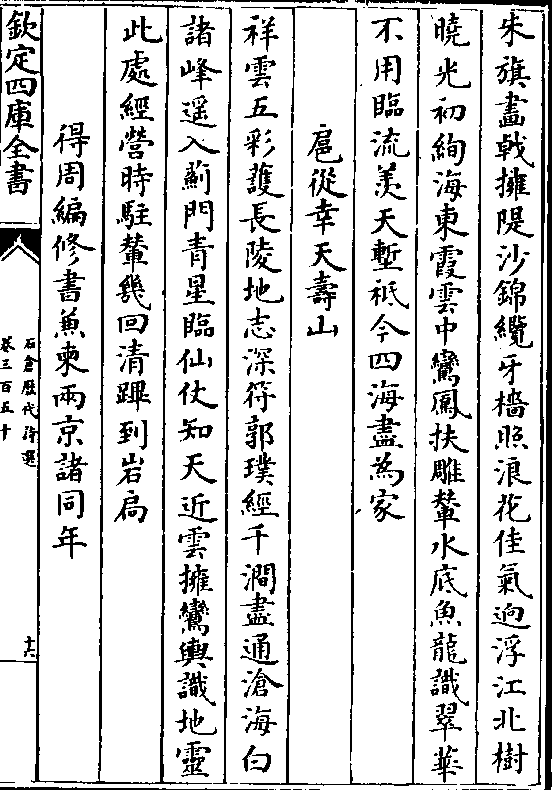 朱旗畫㦸擁隄沙錦纜牙檣照浪花佳氣逈浮江北樹
曉光初絢海東霞雲中鸞鳳扶雕輦水底魚龍識翠華
不用臨流羨天塹祗今四海盡為家
扈從幸天壽山
祥雲五彩護長陵地志深符郭璞經千澗盡通滄海白
諸峰遥入薊門青星臨仙仗知天近雲擁鸞輿識地靈
此處經營時駐輦幾回清蹕到岩扃
得周編修書兼柬兩京諸同年
欽定四庫全書
石倉歷代詩選
卷三百五十
十六